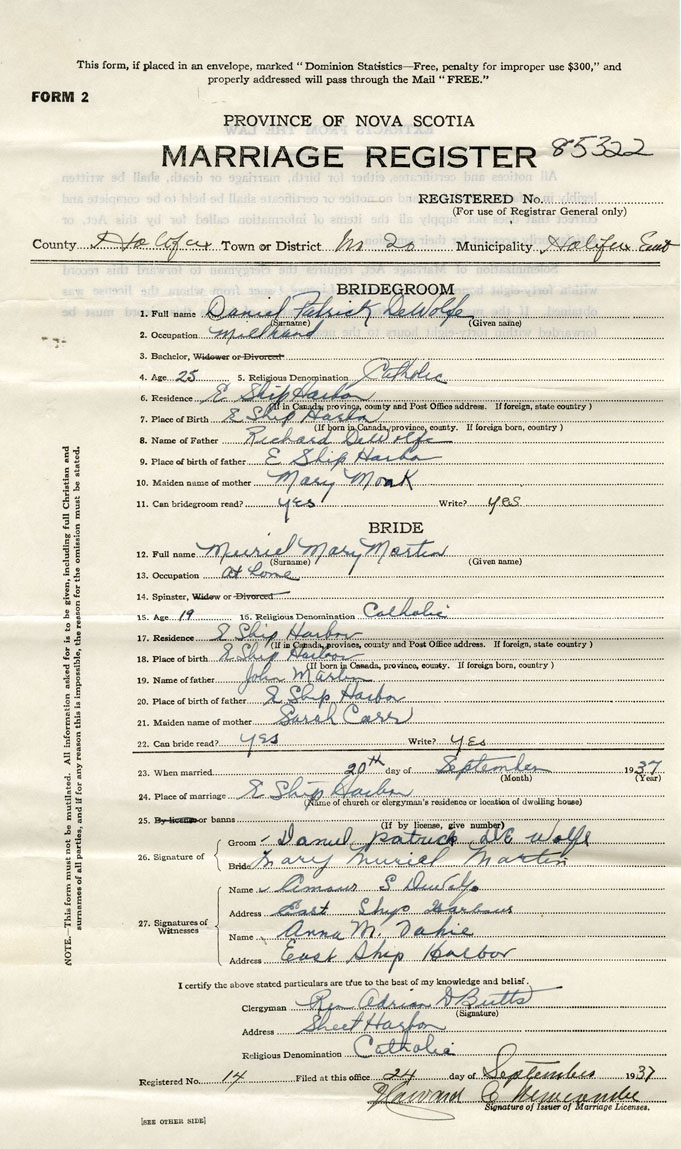 This form, if placed in an envelope, marked "Dominion Statistics—Free, penalty for improper use $300," and
properly addressed will pass through the Mail "FREE."
FORM 2
PROVINCE OF NOVA SCOTIA
MARRIAGE REGISTER 85322
REGISTERED No.
(For use of Registrar General only)
County Halifax Town or District No 20 Municipality Halifax East
BRIDEGROOM
1. Full name Daniel Patrick DeWolfe
(Surname) (Given name)
2. Occupation Millhand
3. Bachelor, Widower or Divorced
4. Age 25 5. Religious Denomination Catholic
6. Residence E Ship Harbor
(If in Canada, province, county and Post Office address. If foreign, state country)
7. Place of Birth E Ship Harbor
(If born in Canada, province, county. If foreign born, country)
8. Name of Father Richard DeWolfe
9. Place of birth of father E Ship Harbor
10. Maiden name of mother Mary Monk
11. Can bridegroom read? yes Write? yes
BRIDE
12. Full name Muriel Mary Martin
(Surname) (Given name)
13. Occupation At home
14. Spinster, Widow or Divorced
15. Age 19 16. Religious Denomination Catholic
17. Residence E Ship Harbor
(If in Canada, province, county and Post Office address. If foreign, state country)
18. Place of birth E Ship Harbor
(If born in Canada, province, county. If foreign born, country)
19. Name of father John Martin
20. Place of birth of father E Ship Harbor
21. Maiden name of mother Sarah Carr
22. Can bride read? yes Write? yes
23. When married 20th day of September 1937
(Month) (Year)
24. Place of marriage E Ship Harbor
(Name of church or clergyman's residence or location of dwelling house)
25. By license or banns
(If by license, give number)
26. Signature of
Groom Daniel patrick DE Wolfe
Bride Mary Muriel Martin
27. Signatures of Witnesses
Name S DeWolfe
Address East Ship Harbour
Name Anna M.
Address East Ship Harbor
I certify the above stated particulars are true to the best of my knowledge and belief.
Clergyman Rev Adrian D Butts
(Signature)
Address Sheet Harbor
Religious Denomination Catholic
Registered No. 14 Filed at this office 24 day of September 1937
Signature of Issuer of Marriage Licenses.
[SEE OTHER SIDE]
NOTE.—This form must not be mutilated. All information asked for is to be given, including full Christian and
surnames of all parties, and if for any reason this is impossible, the reason for the omission must be stated.